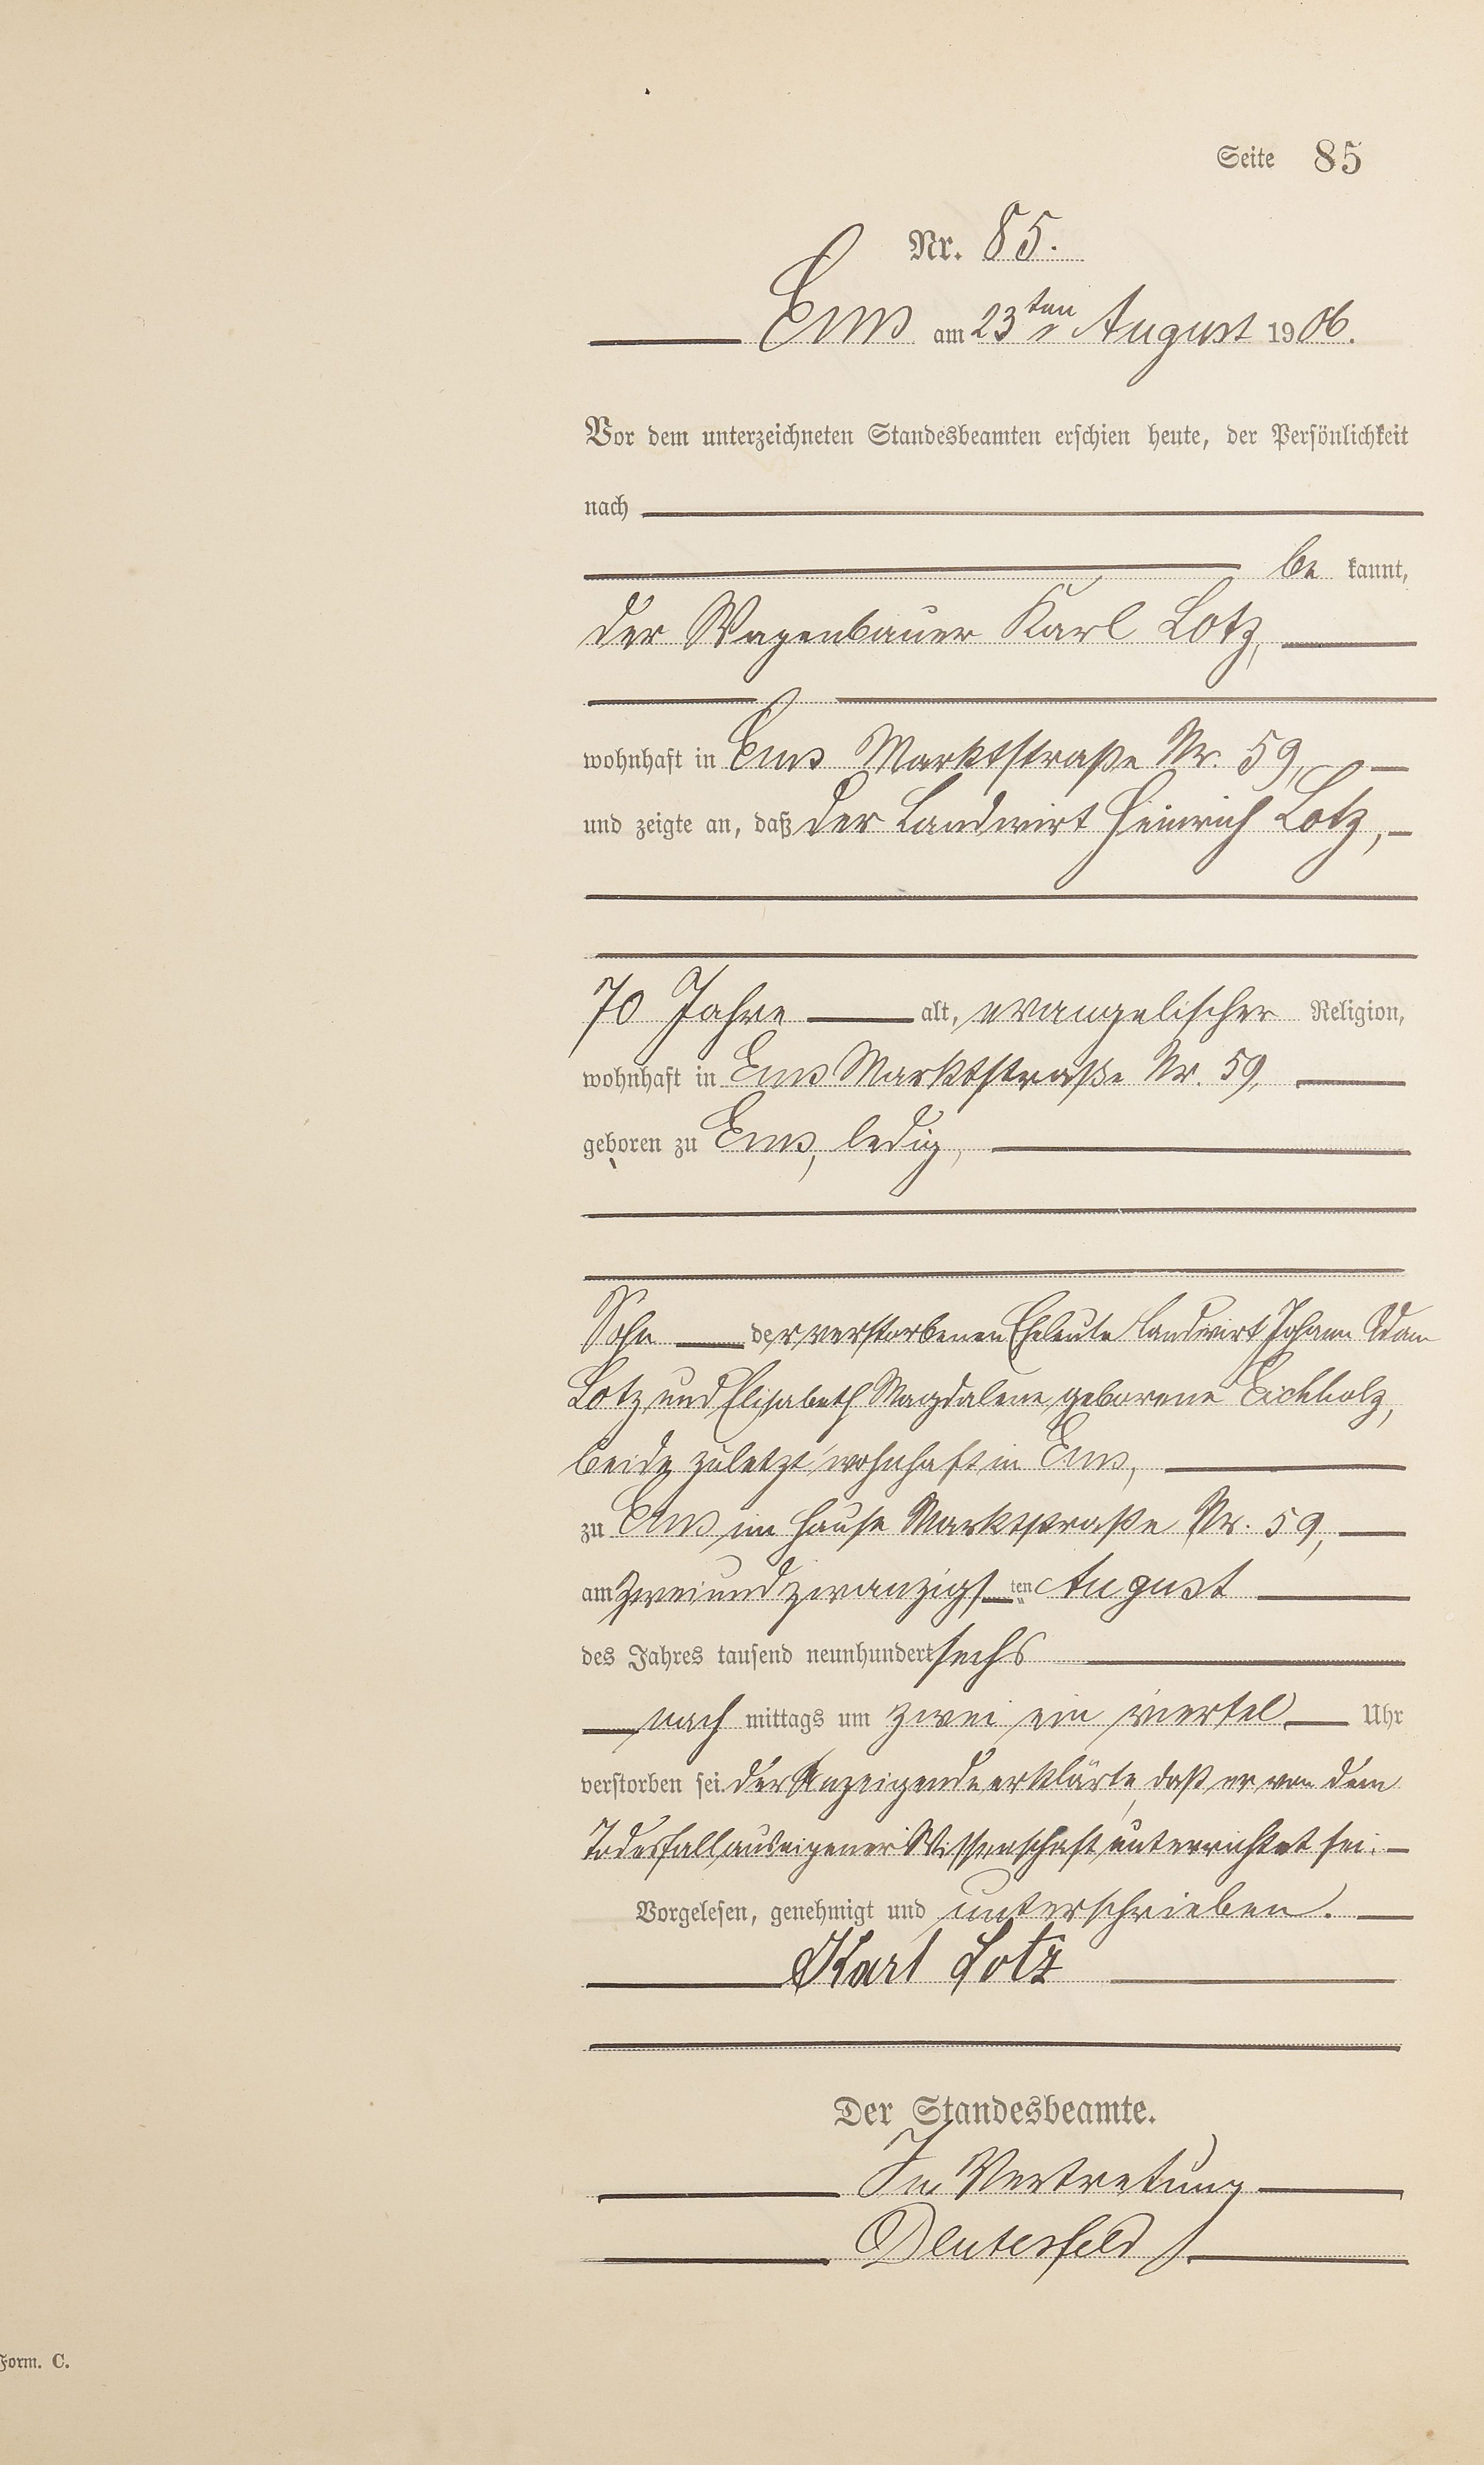 Seite 85
Nr. 85.
Ems am 23ten August 1906.
Vor dem unterzeichneten Standesbeamten erschien heute, der Persönlichkeit
nach
be kannt,
der Wagenbauer Karl Lotz,
wohnhaft in Ems Marktstraße Nr. 59,
und zeigte an, daß der Landwirt Heinrich Lotz,
70 Jahre alt, evangelischer Religion,
wohnhaft in Ems Marktstraße Nr. 59,
geboren zu Ems, ledig,
Sohn der verstorbenen Eheleute Landwirt Johann Adam
Lotz und Elisabeth Magdalene, geborene Eichholz,
beide zuletzt wohnhaft in Ems,
zu Ems im Hause Marktstraße Nr. 59,
am zweiundzwanzigsten August
des Jahres tausend neunhundert sechs
nach mittags um zwei ein viertel Uhr
verstorben sei. Der Anzeigende erklärte, daß er von dem
Todesfall aus eigener Wissenschaft unterrichtet sei.
Vorgelesen, genehmigt und unterschrieben.
Karl Lotz
Der Standesbeamte.
In Vertretung
Form. C.